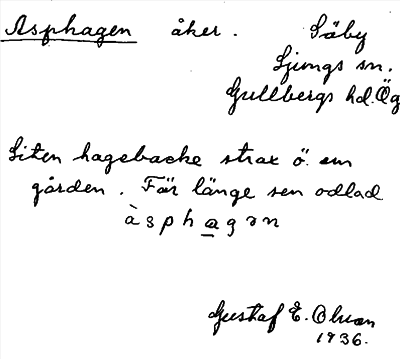 Asphagen åker. Säby
Ljungs sn.
Gullbergs hd. Ög
Liten hagebacke strax ö. om
gården. För länge sen odlad
àsphagən
Gustaf E. Olson
1936.